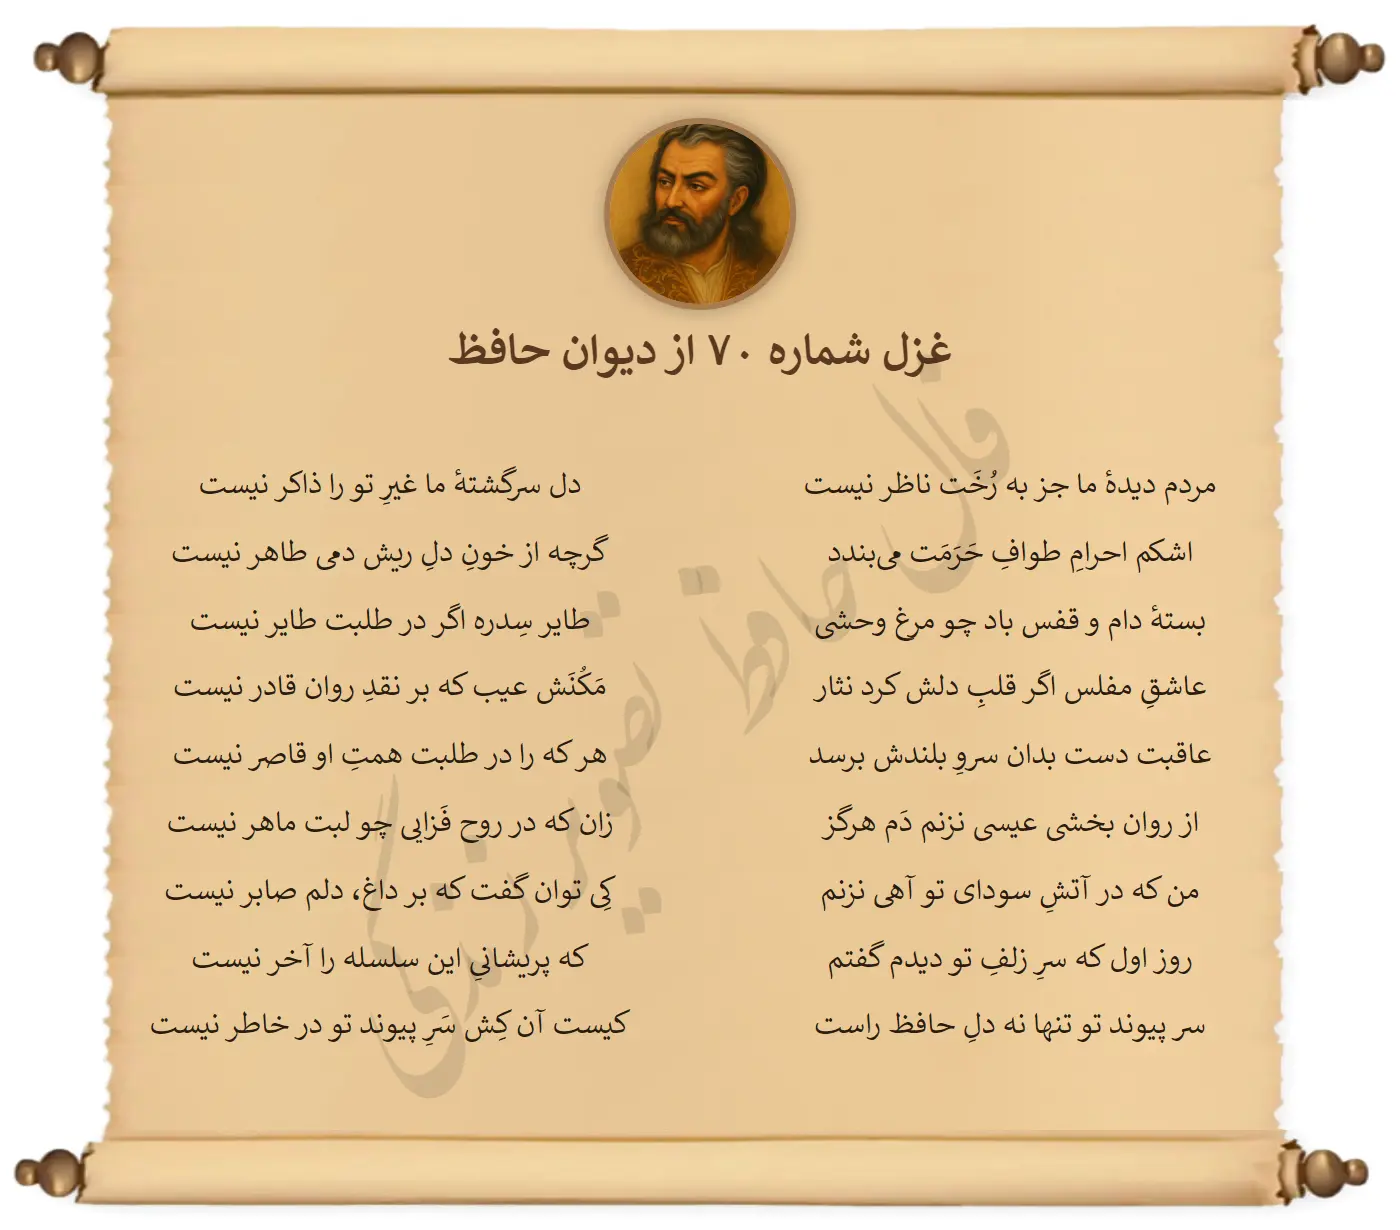 غزل شماره ۷۰ از دیوان حافظ
مردم دیدهٔ ما جز به رُخَت ناظر نیست
دل سرگشتهٔ ما غیرِ تو را ذاکر نیست
اشکم احرامِ طوافِ حَرَمَت می‌بندد
گرچه از خونِ دلِ ریش دمی طاهر نیست
بستهٔ دام و قفس باد چو مرغ وحشی
طایر سِدره اگر در طلبت طایر نیست
عاشقِ مفلس اگر قلبِ دلش کرد نثار
مَکُنَش عیب که بر نقدِ روان قادر نیست
عاقبت دست بدان سروِ بلندش برسد
هر که را در طلبت همتِ او قاصر نیست
از روان بخشی عیسی نزنم دَم هرگز
زان که در روح فَزایی چو لبت ماهر نیست
من که در آتشِ سودای تو آهی نزنم
کِی توان گفت که بر داغ، دلم صابر نیست
روز اول که سرِ زلفِ تو دیدم گفتم
که پریشانیِ این سلسله را آخر نیست
سر پیوند تو تنها نه دلِ حافظ راست
کیست آن کِش سَرِ پیوند تو در خاطر نیست
فال حافظ تصویر زندگی